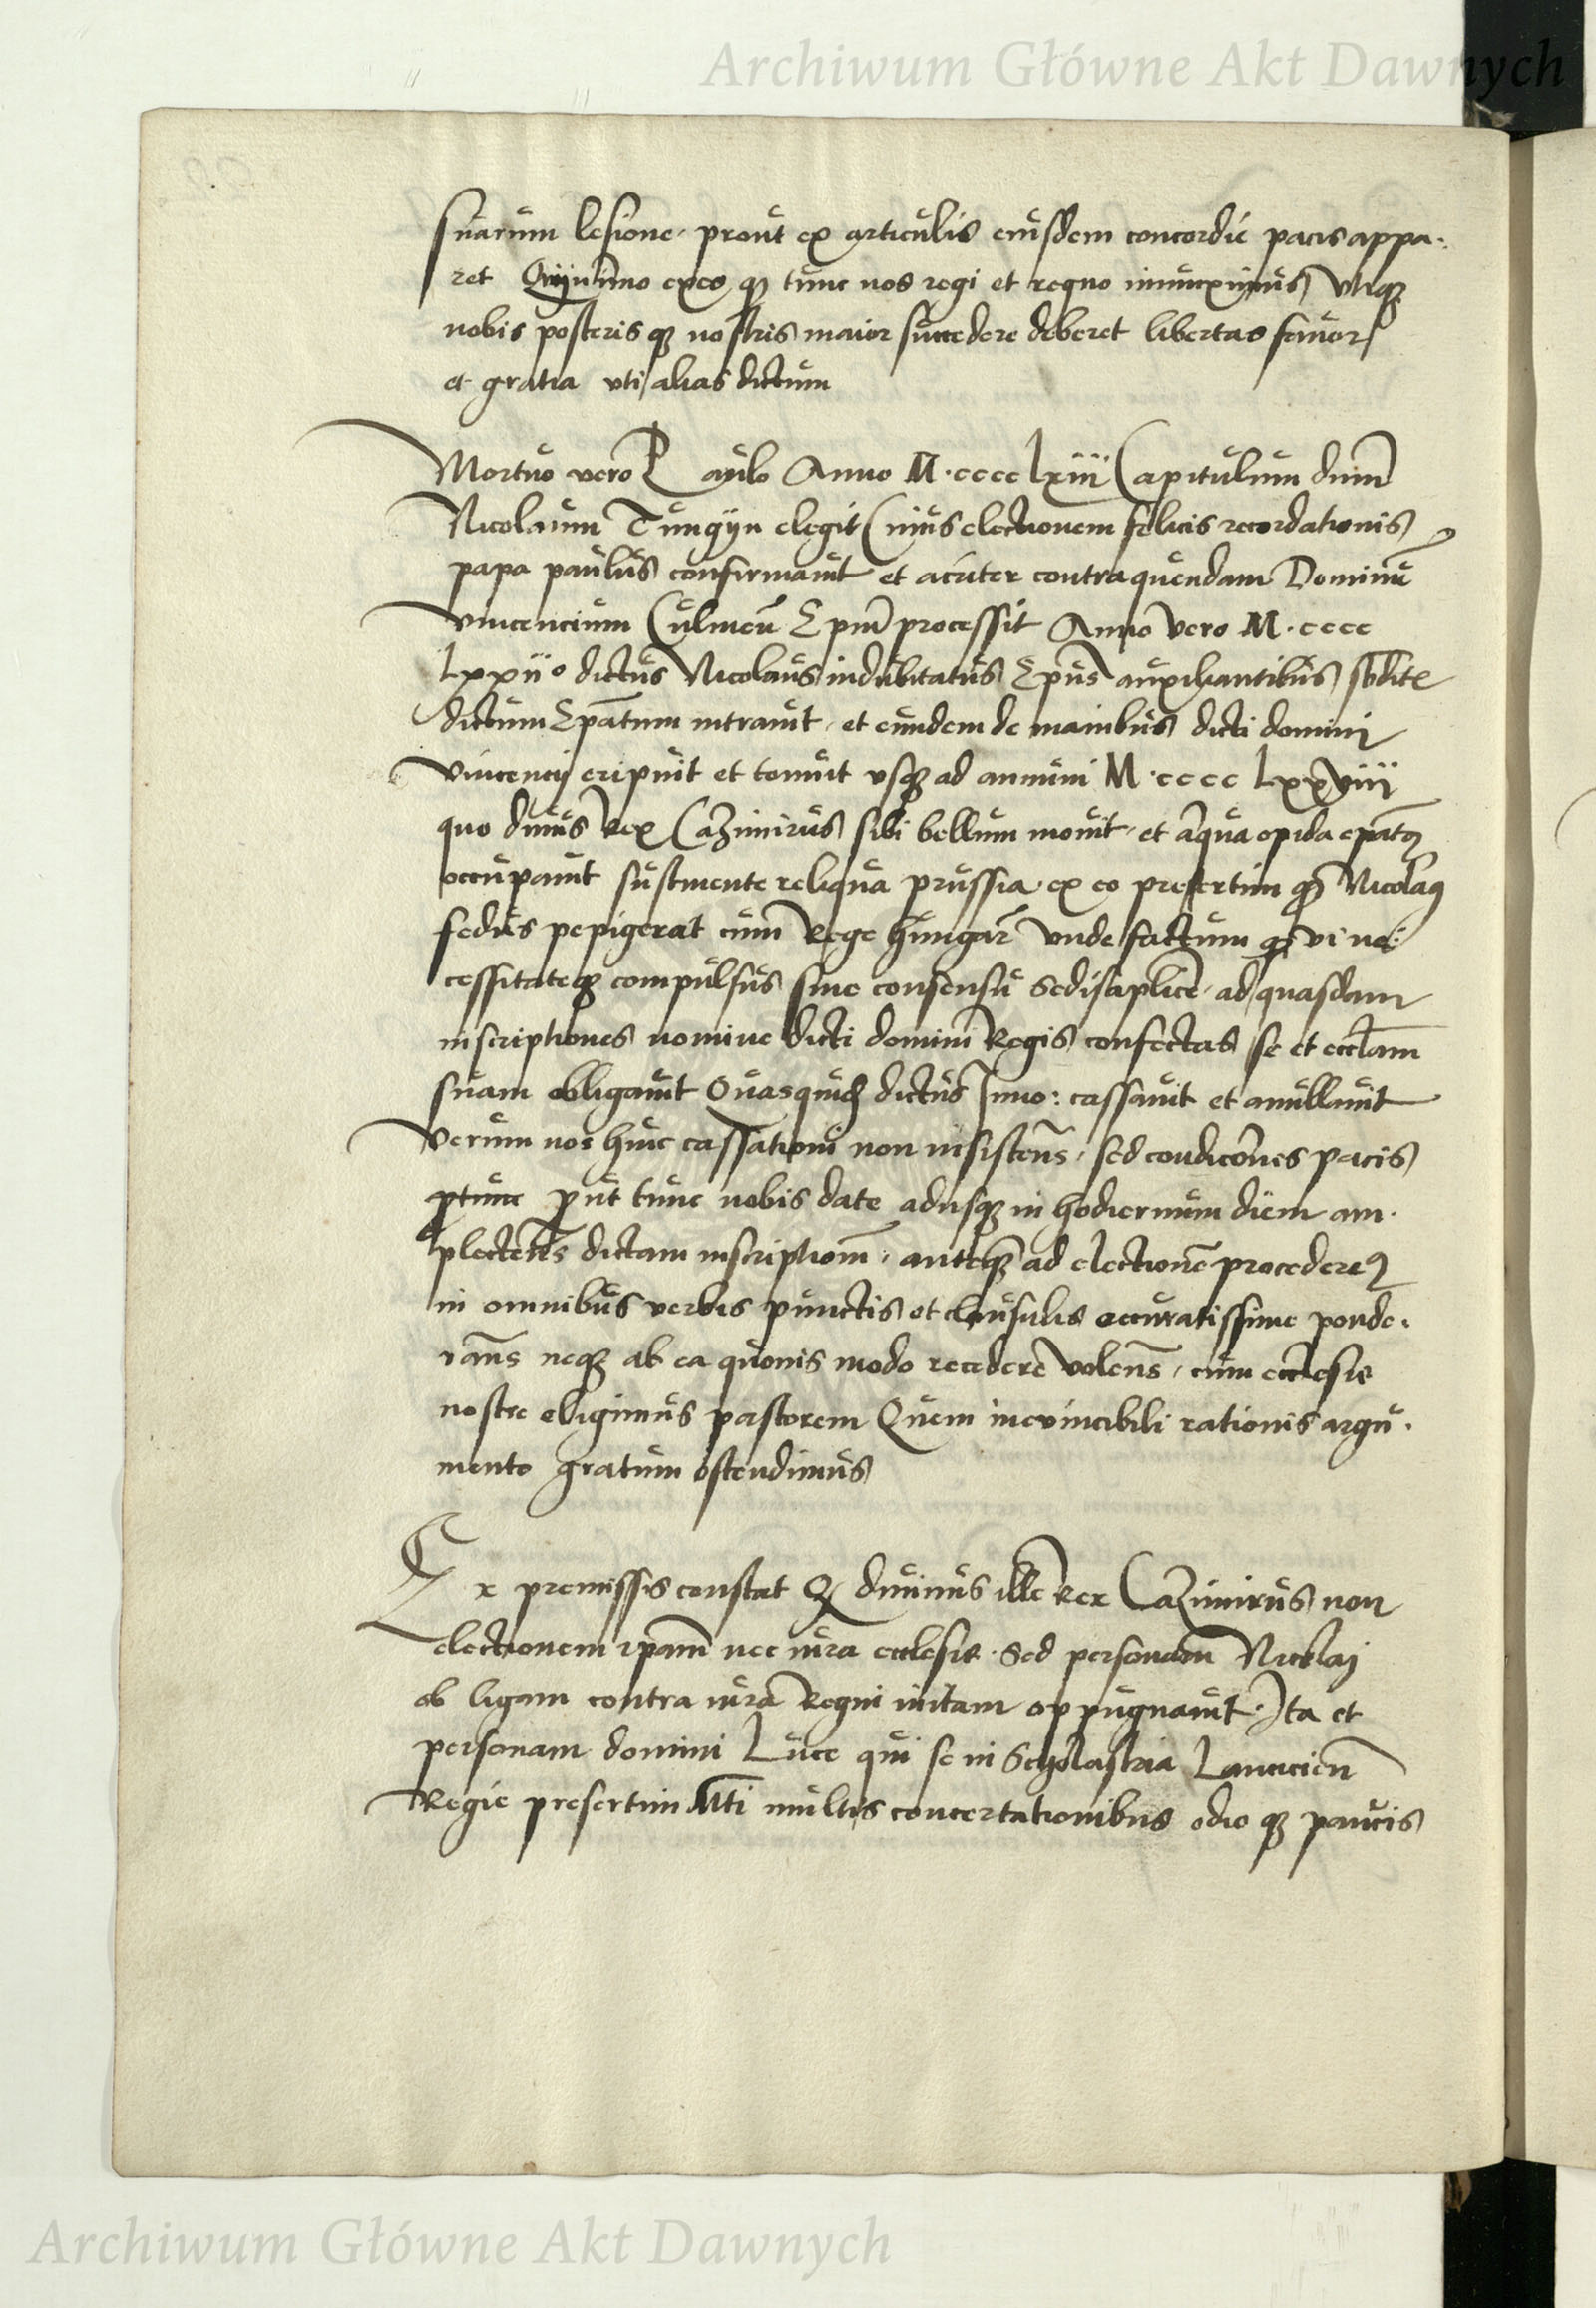 Archiwum Główne Akt Dawnych
suarum lesione, prout ex articulis eiusdem concordie pacis appa-
ret Quynimo ex eo q tunc nos regi et regno iniunximus utiq
nobis posterisq nostris maior succedere deberet libertas favor
et gratia uti alias dictum
Mortuo vero Paulo Anno M.cccc lxiii Capitulum dnm
Nicolaum Tungyn elegit Cuius electionem felicis recordationis
papa paulus confirmavit et acriter contra quendam Dominu
vincencium Culmen Epm processit Anno vero M.cccc
Lxxiio dictus Nicolaus indubitatus Epus auxiliantibus sbdit
dictum Epatum intravit, et eundem de manibus dicti domini
Vincencij eripuit et tenuit usq ad annum M.cccc Lxxviii
quo dnus Rex Cazimirus sibi bellum movit, et aliqua opida epat
occupavit sustinente reliqua prussia, ex eo presertim q Nicolaus
fedus pepigerat cum Rege hungar Unde factum q vi ne-
cessitateq compulsus sine consensu Sedis aplice, ad quasdam
inscriptiones nomine dicti domini Regis confectas se et eccliam
suam obligavit Quas quid dictus Inno: cassavit et anullavit
Verum nos huic cassationi non insistens, sed condicones pacis
ptunc put tunc nobis date adusq in hodiernum diem am-
plectens dictam inscriptiom, anteq ad electione procederet
in omnibus verbis punctis et clausulis accuratissime ponde-
rans neq ab ea quovis modo recedere volens, cum ecclesie
nostre eligimus pastorem Quem inevincibili rationis argu-
mento gratum ostendimus
Ex premissis constat Q divinus ille Rex Cazimirus non
electionem ipam nec iura ecclesie. Sed personam Nicolaj
ob ligam contra iura Regni initam oppugnavit. Ita et
personam domini Luce qui se in Scholastria Lancicien
Regie presertim Mti multis concertationibus odioq paucis
Archiwum Główne Akt Dawnych